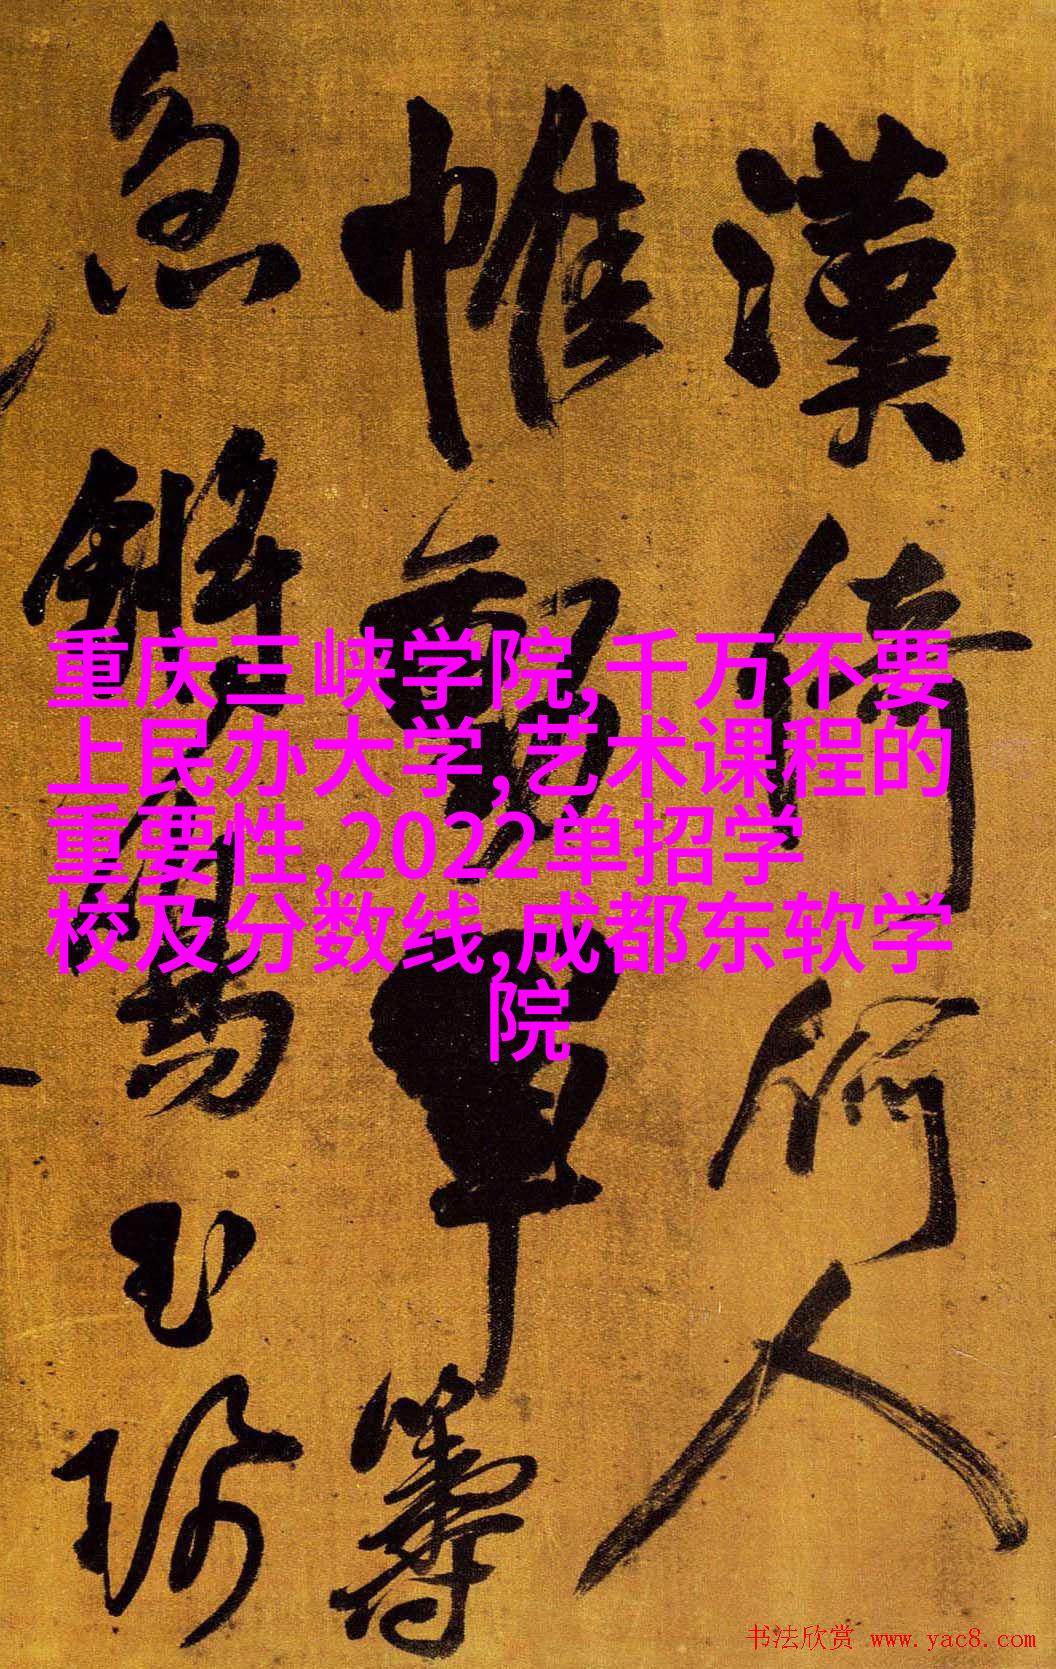 漢倚何人
帷勤軍籌
急
玉
重庆三峡学院,千万不要
上民办大学,艺术课程的
重要性,2022单招学
校及分数线,成都东软学
院
书法欣赏 www.yac8.com